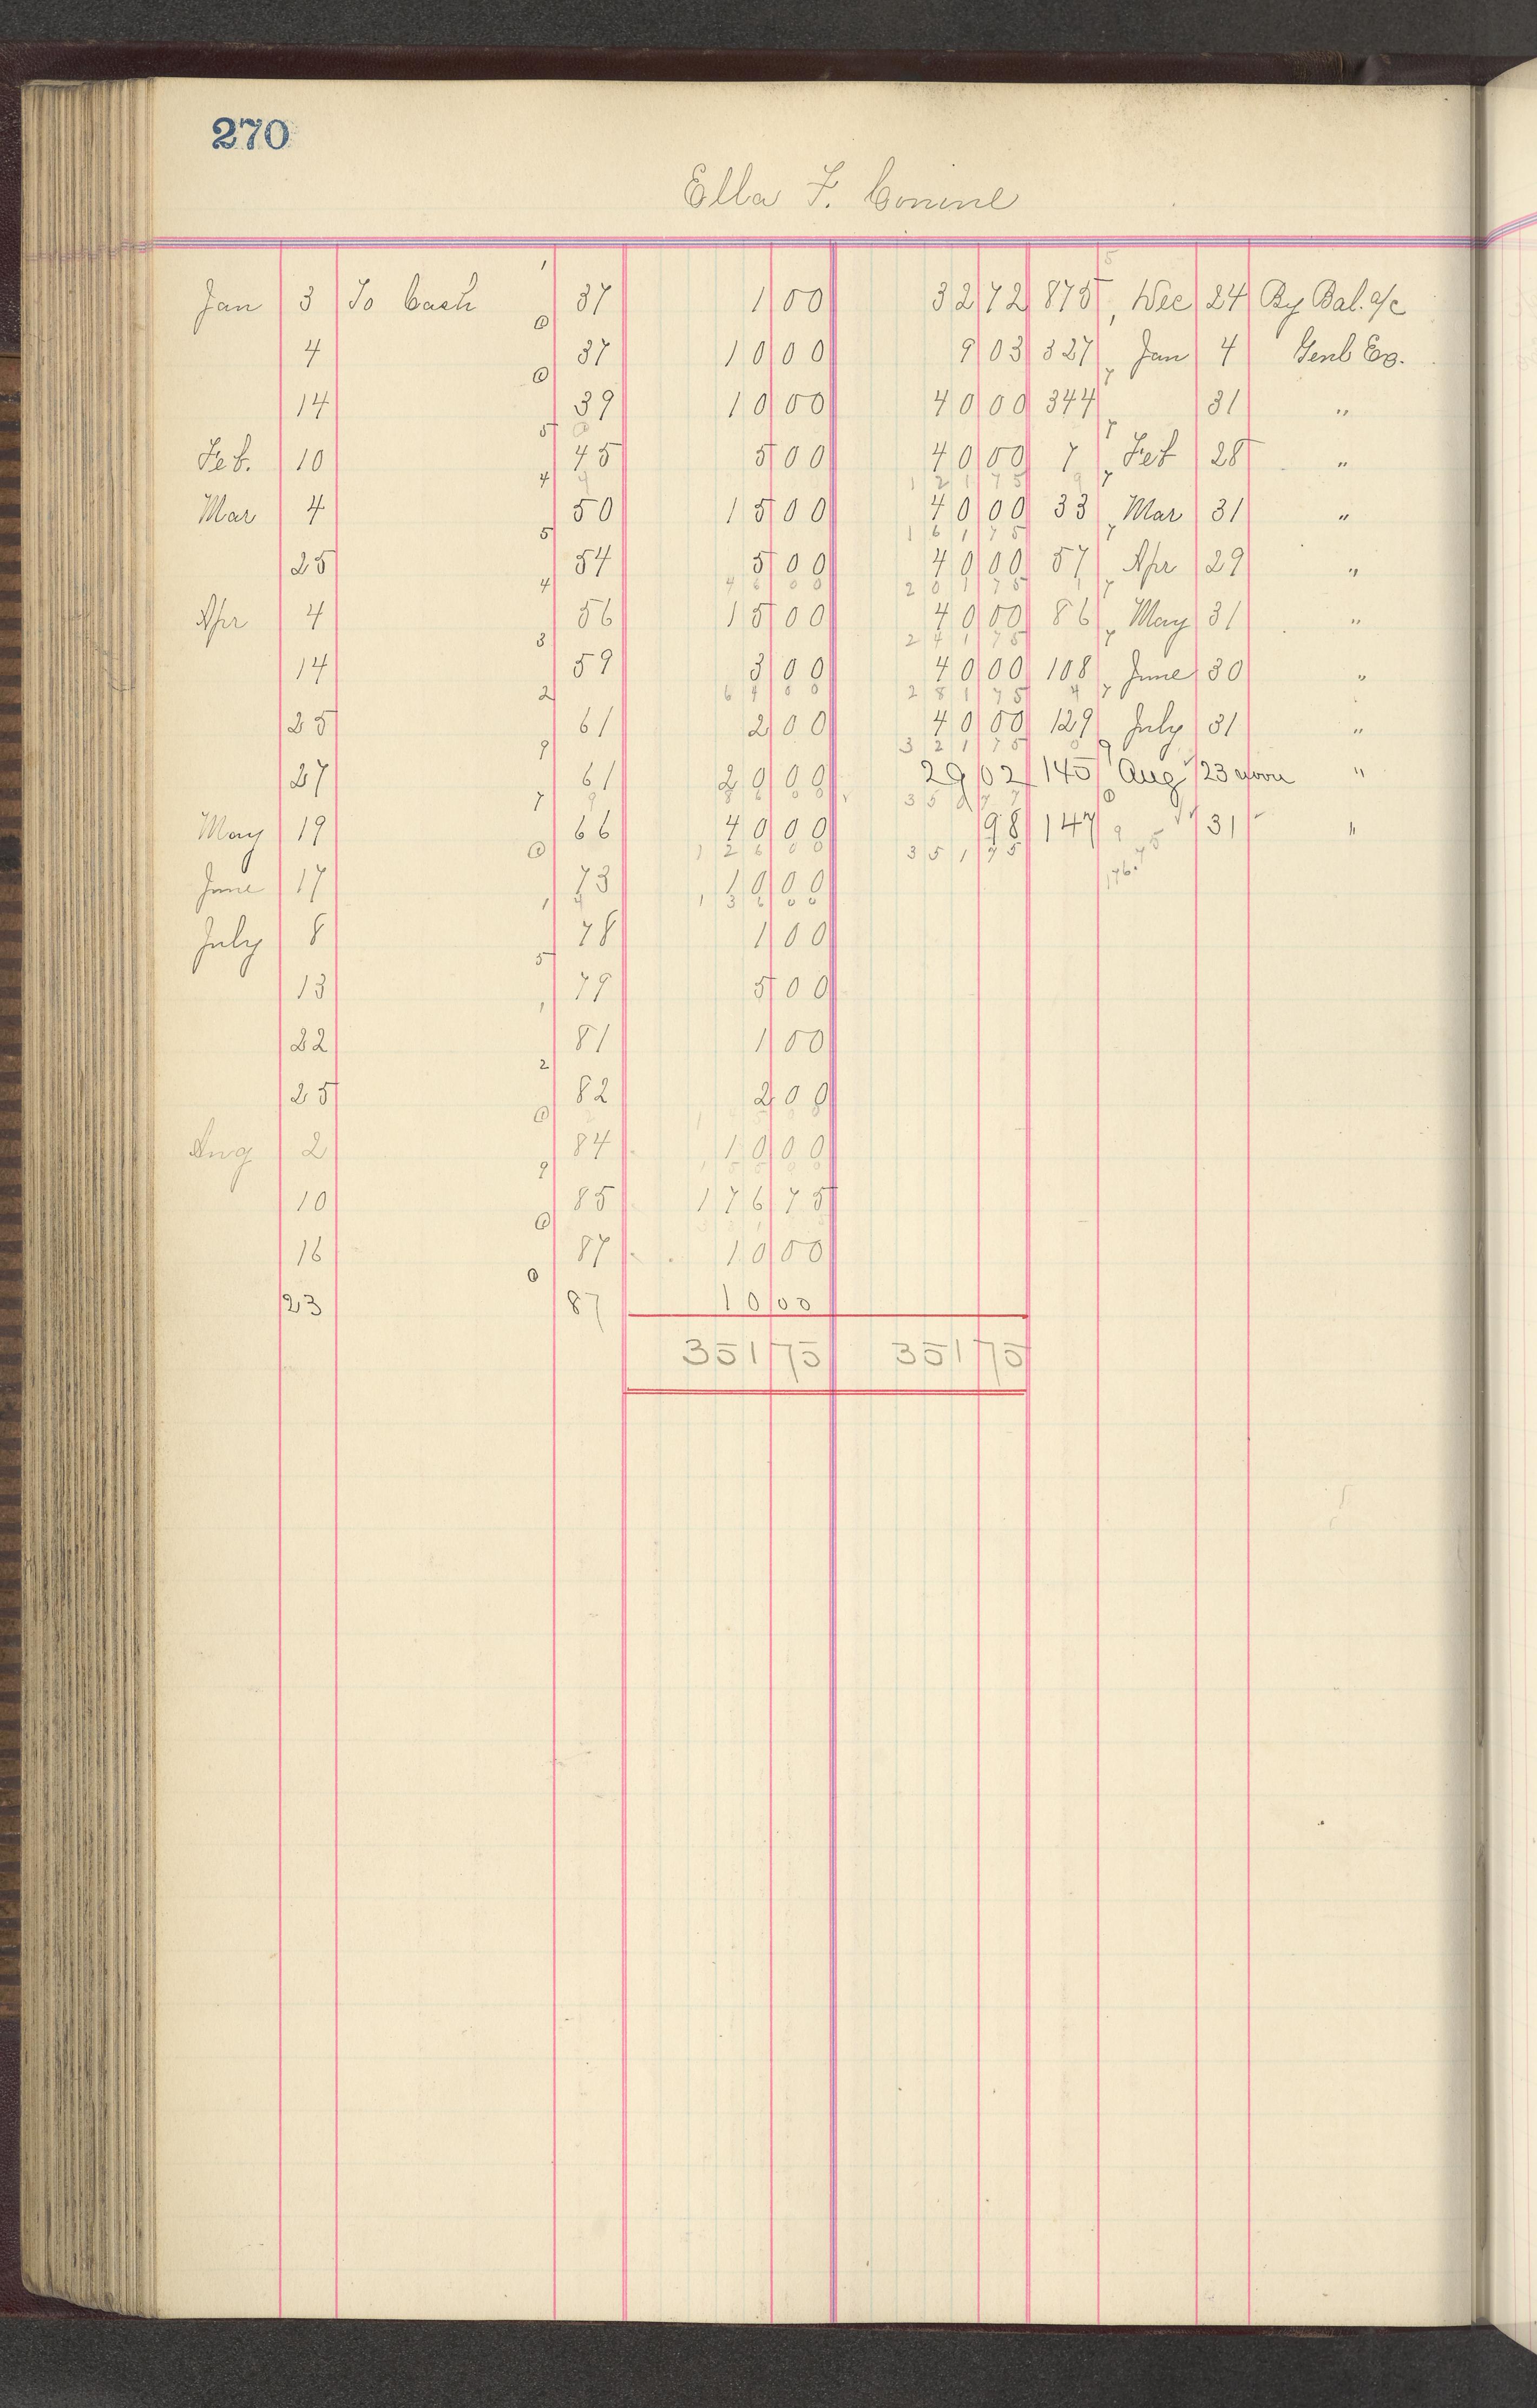 270
Ella F. Conine
Jan 3 To Cash 1 37 1 00 32 72 875 Dec 24 By Bal. a/c
4 0 37 10 00 9 03 327 Jan 4 Genl Ex.
14 0 39 10 00 40 00 344 31 "
Feb. 10 5 45 5 00 40 00 7 Feb 28 "
Mar 4 4 50 15 00 40 00 33 Mar 31 "
25 5 54 5 00 40 00 57 Apr 29 "
Apr 4 4 56 15 00 40 00 86 May 31 "
14 3 59 3 00 40 00 108 June 30 "
25 2 61 2 00 40 00 129 July 31 "
27 9 61 20 00 29 02 145 Aug 23 noon "
May 19 7 66 40 00 98 147 31 "
June 17 0 73 10 00 176.75
July 8 1 78 1 00
13 5 79 5 00
22 1 81 1 00
25 2 82 2 00
Aug 2 0 84 10 00
10 9 85 176 75
16 0 87 10 00
23 0 87 10 00
351 75 351 75